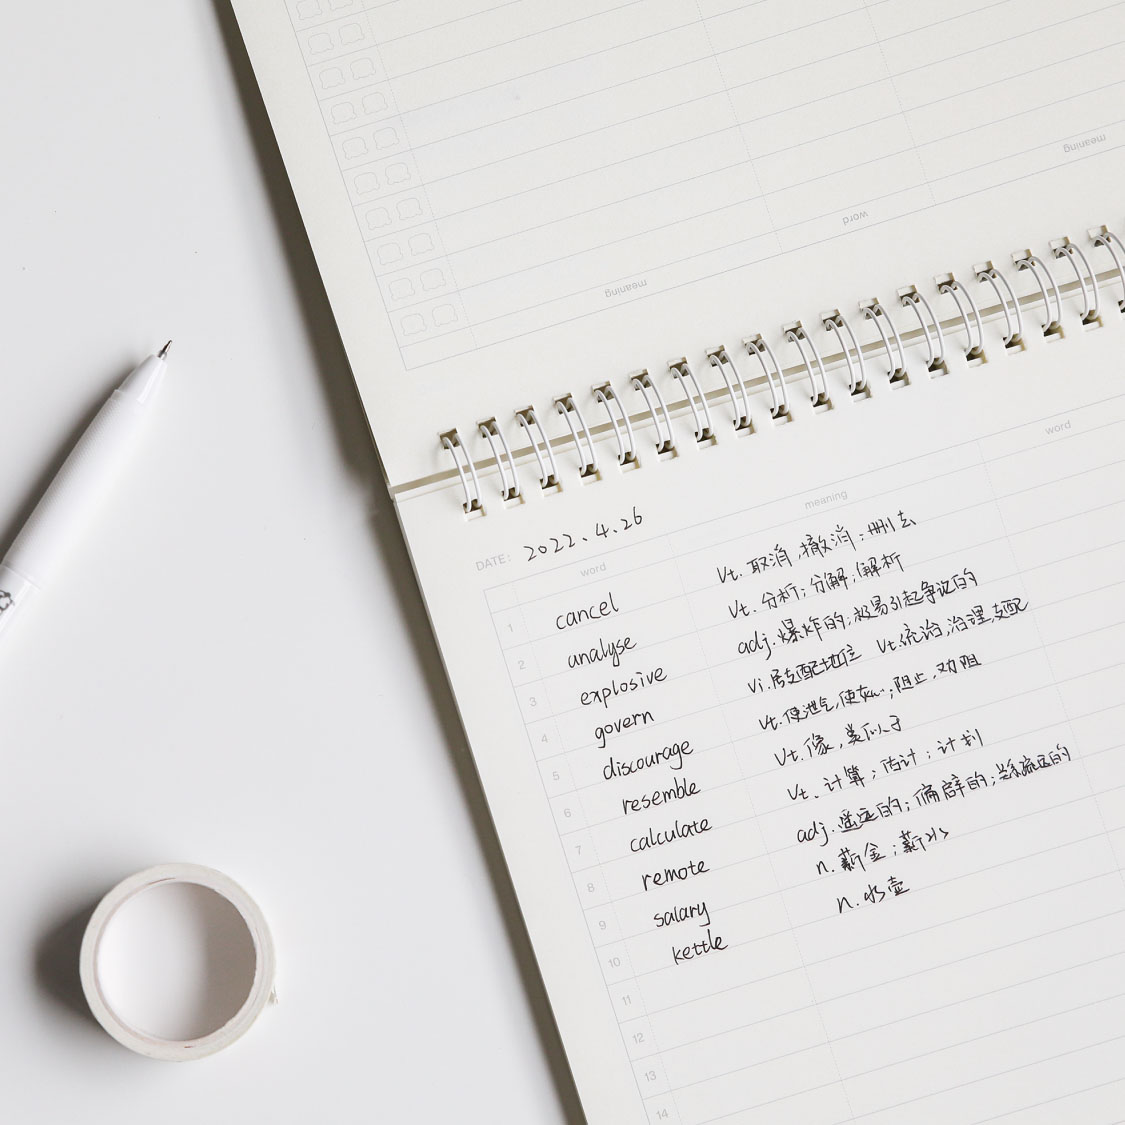 meaning
word
meaning
DATE: 2022.4.26
word meaning word
1 cancel vt. 取消,撤消;删去
2 analyse vt. 分析;分解;解析
3 explosive adj. 爆炸的;极易引起争论的
4 govern vi. 居支配地位 vt. 统治,治理,支配
5 discourage vt. 使泄气,使灰心;阻止,劝阻
6 resemble vt. 像,类似于
7 calculate vt. 计算;估计;计划
8 remote adj. 遥远的;偏僻的;疏远的
9 salary n. 薪金;薪水
10 kettle n. 水壶
11
12
13
14